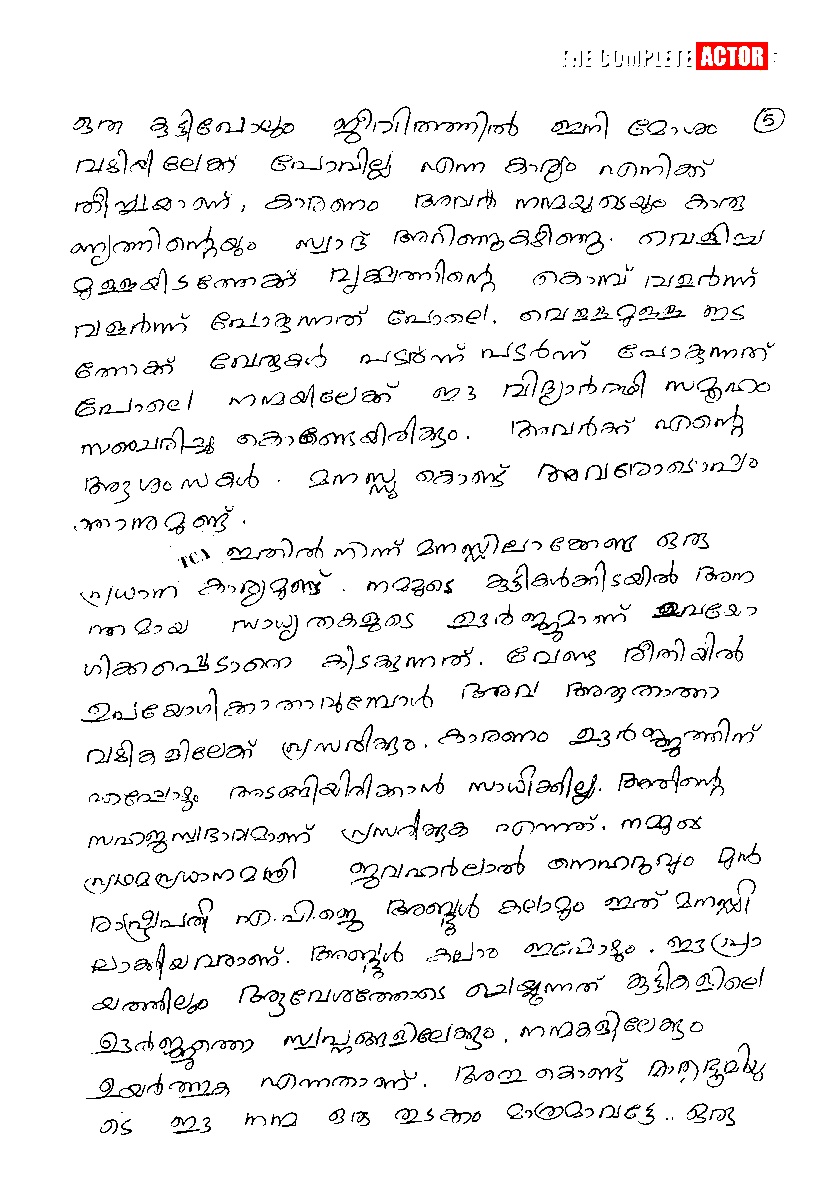 THE COMPLETE ACTOR
ഒരു കുട്ടിപോലും ജീവിതത്തിൽ ഇനി മോശം 5
വഴിയിലേക്ക് പോവില്ല എന്ന കാര്യം എനിക്ക്
തീർച്ചയാണ്, കാരണം അവർ നന്മയുടെയും കാരു
ണ്യത്തിന്റെയും സ്വാദ് അറിഞ്ഞുകഴിഞ്ഞു. വെളിച്ച
മുള്ളയിടത്തേക്ക് വൃക്ഷത്തിന്റെ കൊമ്പ് വളർന്ന്
വളർന്ന് പോകുന്നത് പോലെ. വെള്ളമുള്ള ഇട
ത്തേക്ക് വേരുകൾ പടർന്ന് പടർന്ന് പോകുന്നത്
പോലെ നന്മയിലേക്ക് ഈ വിദ്യാർത്ഥി സമൂഹം
സഞ്ചരിച്ചു കൊണ്ടേയിരിക്കും. അവർക്ക് എന്റെ
ആശംസകൾ. മനസ്സു കൊണ്ട് അവരോടൊപ്പം
ഞാനുമുണ്ട്.
TCA ഇതിൽ നിന്ന് മനസ്സിലാക്കേണ്ട ഒരു
പ്രധാന കാര്യമുണ്ട്. നമ്മുടെ കുട്ടികൾക്കിടയിൽ അന
ന്തമായ സാധ്യതകളുടെ ഊർജ്ജമാണ് ഉപയോ
ഗിക്കപ്പെടാതെ കിടക്കുന്നത്. വേണ്ട രീതിയിൽ
ഉപയോഗിക്കാതാവുമ്പോൾ അവ അരുതാത്ത
വഴികളിലേക്ക് പ്രസരിക്കും. കാരണം ഊർജ്ജത്തിന്
എപ്പോഴും അടങ്ങിയിരിക്കാൻ സാധിക്കില്ല. അതിന്റെ
സഹജസ്വഭാവമാണ് പ്രസരിക്കുക എന്നത്. നമ്മുടെ
പ്രഥമപ്രധാനമന്ത്രി ജവഹർലാൽ നെഹറുവും മുൻ
രാഷ്ട്രപതി എ.പി.ജെ അബ്ദുൾ കലാമും ഇത് മനസ്സി
ലാക്കിയവരാണ്. അബ്ദുൾ കലാം ഇപ്പോഴും, ഈ പ്രാ
യത്തിലും ആവേശത്തോടെ ചെയ്യുന്നത് കുട്ടികളിലെ
ഊർജ്ജത്തെ സ്വപ്നങ്ങളിലേക്കും, നന്മകളിലേക്കും
ഉയർത്തുക എന്നതാണ്. അതു കൊണ്ട് മാതൃഭൂമിയു
ടെ ഈ നന്മ ഒരു തുടക്കം മാത്രമാവട്ടേ.. ഒരു